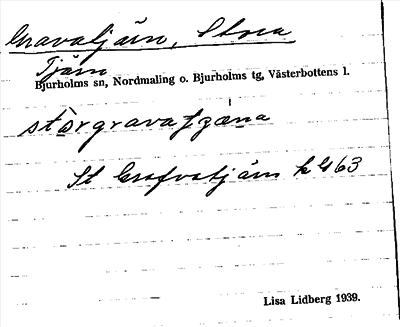 Gravatjärn, Stora
Tjärn
Bjurholms sn, Nordmaling o. Bjurholms tg, Västerbottens l.
St Grafvatjärn k 463
Lisa Lidberg 1939.